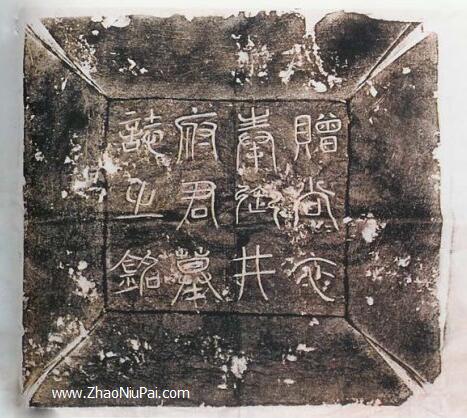 贈尚衣
奉御井
府君墓
誌之銘
www.ZhaoNiuPai.com